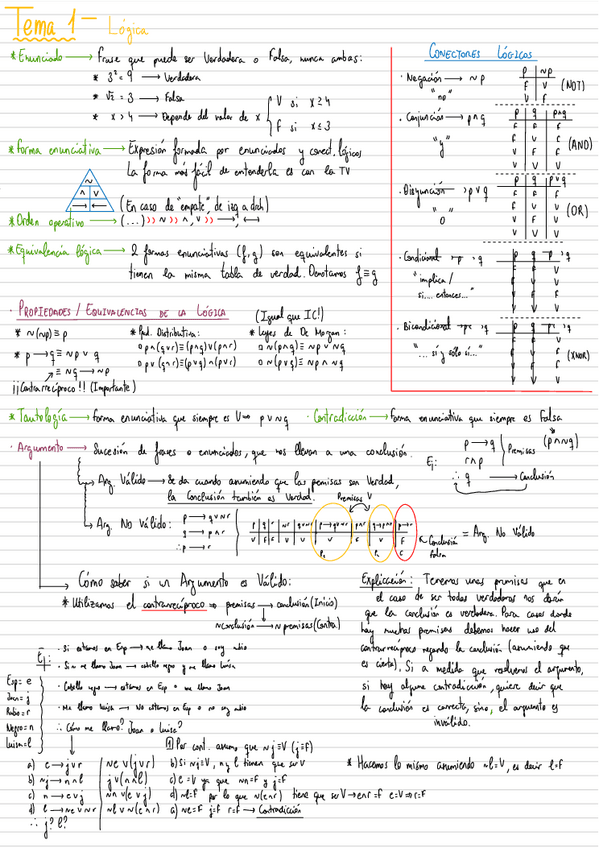 Tema 1 - Lógica
* Enunciado → Frase que puede ser Verdadera o Falsa, nunca ambas:
* 3² = 9 → Verdadera
* √2 = 3 → Falsa
* x > 4 → Depende del valor de x { V si x ≥ 4
F si x ≤ 3
* Forma enunciativa → Expresión formada por enunciados y conect. lógicos
La forma más fácil de entenderla es con la TV
~
∧ V
→ ↔
(En caso de "empate", de izq a dch)
* Orden operativo → (...) >> ~ >> ∧, ∨ >> →, ↔
* Equivalencia lógica → 2 formas enunciativas (f, g) son equivalentes si
tienen la misma tabla de verdad. Denotamos f ≡ g
CONECTORES LÓGICOS
· Negación → ~p
"no"
p ~p
F V
V F
(NOT)
· Conjunción → p∧q
"y"
p q p∧q
F F F
F V F
V F F
V V V
(AND)
· Disyunción → p∨q
"o"
p q p∨q
F F F
F V V
V F V
V V V
(OR)
· Condicional → p → q
"implica /
si... entonces..."
p q p → q
· Bicondicional → p ↔ q
"... sí y sólo si..."
(XNOR)
· PROPIEDADES / EQUIVALENCIAS DE LA LÓGICA (Igual que IC!)
* ~(~p) ≡ p
* p → q ≡ ~p ∨ q
≡ ~q → ~p
¡¡Contrarrecíproco!! (Importante)
* Prod. Distributiva:
o p∧(q∨r) ≡ (p∧q)∨(p∧r)
o p∨(q∧r) ≡ (p∨q)∧(p∨r)
* Leyes de De Morgan:
o ~(p∧q) ≡ ~p ∨ ~q
o ~(p∨q) ≡ ~p ∧ ~q
* Tautología → Forma enunciativa que siempre es V → p ∨ ~q · Contradicción → Forma enunciativa que siempre es Falsa
(p∧~q)
· Argumento → Sucesión de frases o enunciados, que nos llevan a una conclusión.
Ej:
p → q
r∧p
Premisas
∴ q → Conclusión
Arg. Válido → Se da cuando asumiendo que las premisas son Verdad,
la conclusión también es Verdad.
Premisas V
Arg. No Válido:
p → q∨~r
q → p∧r
∴ p → r
Conclusión
Falsa
= Arg. No Válido
→ Cómo saber si un Argumento es Válido:
* Utilizamos el contrarrecíproco → premisas → conclusión (Inicio)
~conclusión → ~premisas (Contra)
Explicación: Tenemos unas premisas que en
el caso de ser todas verdaderas nos dirán
que la conclusión es verdadera. Para casos donde
hay muchas premisas debemos hacer uso del
contrarrecíproco negando la conclusión (asumiendo que
es cierta). Si a medida que resolvemos el argumento,
si hay alguna contradicción, quiere decir que
la conclusión es correcta, sino, el argumento es
inválido.
Ej:
· Si estamos en Esp → me llamo Juan o soy rubio
· Si no me llamo Juan → cabello negro y me llamo Luisa
· Cabello negro → estamos en Esp o me llamo Juan
· Me llamo Luisa → No estamos en Esp o no soy rubio
∴ Cómo me llamo? Juan o Luisa?
Esp = e
Juan = j
Rubio = r
Negro = n
Luisa = l
a) e → j∨r
b) ~j → n∧l
c) n → e∨j
d) l → ~e∨~r
∴ j? l?
~e∨(j∨r)
j∨(n∧l)
~n∨(e∨j)
~l∨~(e∧r)
1) Por cont. asumo que ~j ≡ V (j ≡ F)
b) Si ~j = V, n y l tienen que ser V
c) e = V ya que ~n = F y j = F
d) ~l = F por lo que ~(e∧r) tiene que ser V → e∧r = F e = V ⇒ r = F
a) ~e = F j = F r = F → Contradicción
* Hacemos lo mismo asumiendo ~l = V, es decir l = F